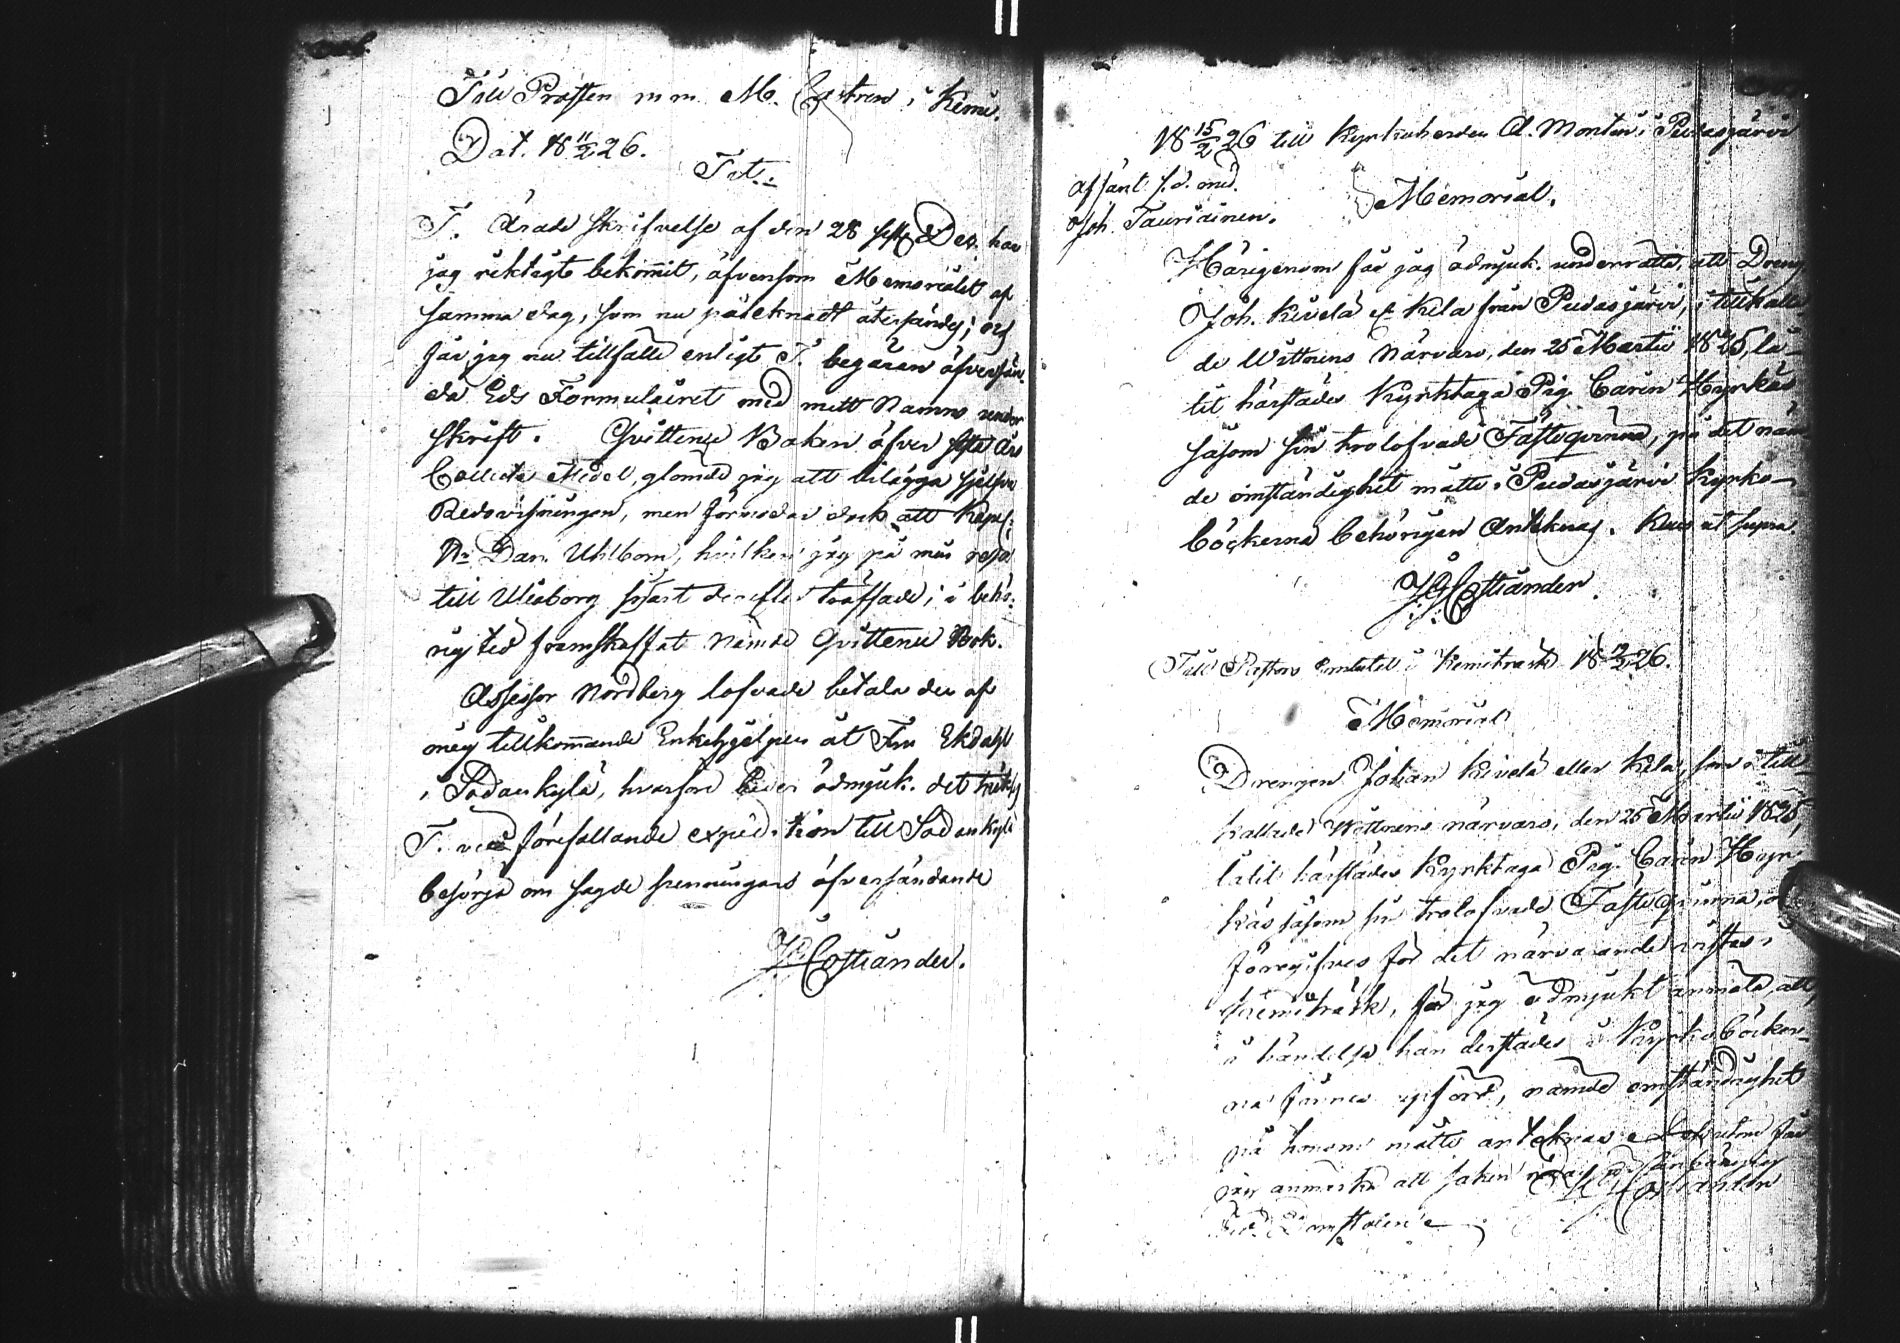 Till Prosten m m. M. Castren i Kemi.
Dat. 18 11/2 26.
T. t.:
T. Ärade skrifvelse af den 28 sistl. Dec. har
jag riktigt bekommit, äfvensom Memorialet af
samma dag, som nu påteknadt återsändes; och
får jag nu tillfälle enligt T. begäran öfversän-
da Eds Formulairet med mitt Namns under
skrift. Qvittence Boken öfver sista års
Collecte Medel, glömde jag att bilägga sjelfva
Redovisningen, men förmodar dock att Kapel:
Nr Dan. Uhlbom, hvilken jag på min resa
till Uleåborg straxt derefter träffade, i behö-
rig tid framskaffat nämde Qvittence Bok.
Assessor Nordberg lofvade betala den af
mig tillkommande Enkehjelpen åt Fru Ekdahl
i Sodankylä, hvarföre beder ödmjuk. det
T. vid förefallande expedition till Sodankylä
besörja om sagde penningars öfversändande
J G Costiander.
18 15/2 26 till Kyrkoherden A. Montin i Pudasjärvi
afsänt s. d. med
Joh. Tauriainen.
Memorial.
Härigenom får jag ödmjuk. underrätta, att Dreng
Joh. Kivelä el. Kela från Pudasjärvi, i tillkalla-
de Wittnens närvaro, den 25 Martii 1825, lå-
tit härstädes Kyrktaga Pig. Carin Hyrkäs
såsom sin trolofvade Fästeqvinna, på det näm-
de omständighet måtte i Pudasjärvi Kyrko-
böckerna behörigen Anteknas. Kuus ut supra.
J G Costiander.
Till Pastors Embetet i Kemiträsk 18 17/2 26.
Memorial
Drengen Johan Kivelä eller Kela, som i till-
kallade Wittnens närvaro, den 25 Martii 1825,
låtit härstädes Kyrktaga Pig. Carin Hyr-
käs såsom sin trolofvade Fästeqvinna, och
föregifves för det närvarande vistas i
Kemiträsk, får jag ödmjukt anmäla, att,
i händelse han derstädes i Kyrkoböcker-
na finnes upförd, nämde omständighet
på honom måtte anteknas. Dessutom får
jag anmärka att saken
J G Costiander
vid Domstolen